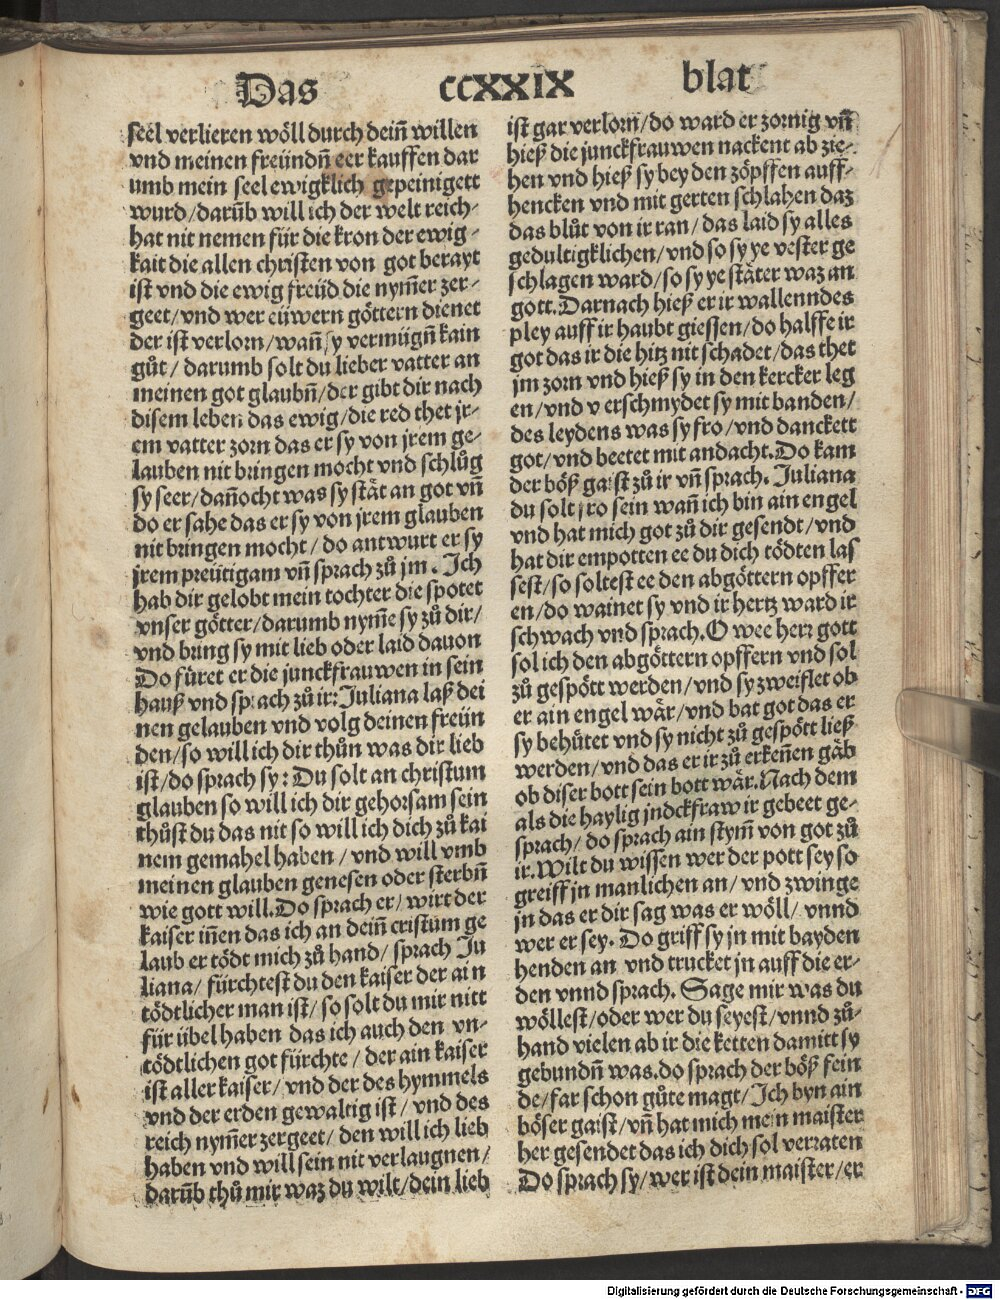 Das CCXXIX blat
seel verlieren wöll durch dein̄ willen
vnd meinen freündn̄ eer kauffen dar
umb mein seel ewigklich gepeinigett
wurd/darūb will ich der welt reich-
hat nit nemen für die kron der ewig-
kait die allen christen von got berayt
ist vnd die ewig freüd die nym̄er zer-
geet/vnd wer eüwern göttern dienet
der ist verlorn/wan̄ sy vermügn̄ kain
gůt/ darumb solt du lieber vatter an
meinen got glaubn̄/der gibt dir nach
disem leben das ewig/die red thet jr-
em vatter zorn das er sy von jrem ge-
lauben nit bringen mocht vnd schlůg
sy seer/dan̄ocht was sy stät an got vn̄
do er sahe das er sy von jrem glauben
nit bringen mocht/do antwurt er sy
jrem preütigam vn̄ sprach zů jm. Ich
hab dir gelobt mein tochter die spotet
vnser götter/darumb nym̄e sy zů dir/
vnd bring sy mit lieb oder laid dauon
Do füret er die junckfrauwen in sein
hauß vnd sprach zů ir: Juliana laß dei
nen gelauben vnd volg deinen freün
den/so will ich dir thůn was dir lieb
ist/do sprach sy: Du solt an christum
glauben so will ich dir gehorsam sein
thůst du das nit so will ich dich zů kai
nem gemahel haben/vnd will vmb
meinen glauben genesen oder sterbn̄
wie gott will. Do sprach er/ wirt der
kaiser in̄en das ich an dein̄ cristum ge
laub er tödt mich zů hand/ sprach Ju
liana/ fürchtest du den kaiser der ain
tödtlicher man ist/ so solt du mir nitt
für übel haben das ich auch den vn-
tödtlichen got fürchte/ der ain kaiser
ist aller kaiser/ vnd der des hymmels
vnd der erden gewaltig ist/ vnd des
reich nym̄er zergeet/ den will ich lieb
haben vnd will sein nit verlaugnen/
darūb thů mir waz du wilt/dein lieb
ist gar verlorn/do ward er zornig vn̄
hieß die junckfrauwen nackent ab zie-
hen vnd hieß sy bey den zöpffen auff-
hencken vnd mit gerten schlahen daz
das blůt von ir ran/das laid sy alles
gedultigklichen/vnd so sy ye vester ge
schlagen ward/so sy ye stäter waz an
gott. Darnach hieß er ir wallenndes
pley auff ir haubt giessen/do halffe ir
got das ir die hitz nit schadet/das thet
jm zorn vnd hieß sy in den kercker leg
en/vnd verschmydet sy mit banden/
des leydens was sy fro/vnd danckett
got/vnd beetet mit andacht. Do kam
der böß gaist zů ir vn̄ sprach. Juliana
du solt fro sein wan̄ ich bin ain engel
vnd hat mich got zů dir gesendt/vnd
hat dir empotten ee du dich tödten las
sest/so soltest ee den abgöttern opffer
en/do wainet sy vnd ir hertz ward ir
schwach vnd sprach. O wee herr gott
sol ich den abgöttern opffern vnd sol
zů gespött werden/vnd sy zweiflet ob
er ain engel wär/vnd bat got das er
sy behütet vnd sy nicht zů gespött ließ
werden/vnd das er ir zů erken̄en gäb
ob diser bott sein bott wär. Nach dem
als die haylig jndckfraw ir gebeet ge-
sprach/ do sprach ain stym̄ von got zů
ir. Wilt du wissen wer der pott sey so
greiff jn manlichen an/ vnd zwinge
jn das er dir sag was er wöll/ vnnd
wer er sey. Do griff sy jn mit bayden
henden an vnd trucket jn auff die er-
den vnnd sprach. Sage mir was du
wöllest/oder wer du seyest/vnnd zů-
hand vielen ab ir die ketten damitt sy
gebundn̄ was. do sprach der böß fein
de/far schon gůte magt/Ich byn ain
böser gaist/vn̄ hat mich mein maister
her gesendet das ich dich sol verraten
Do sprach sy/wer ist dein maister/er
Digitalisierung gefördert durch die Deutsche Forschungsgemeinschaft - DFG